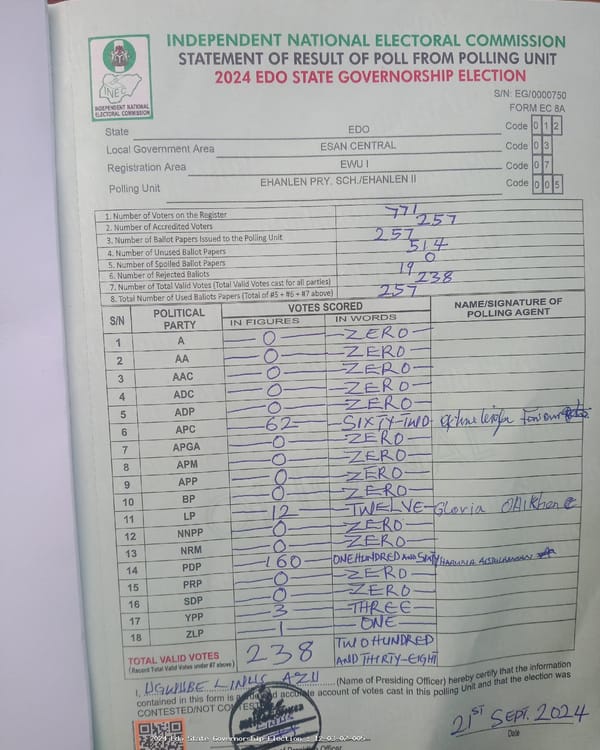 INDEPENDENT NATIONAL ELECTORAL COMMISSION
STATEMENT OF RESULT OF POLL FROM POLLING UNIT
2024 EDO STATE GOVERNORSHIP ELECTION
INEC
INDEPENDENT NATIONAL
ELECTORAL COMMISSION
S/N: EG/0000750
FORM EC 8A
State EDO Code 0 1 2
Local Government Area ESAN CENTRAL Code 0 3
Registration Area EWU I Code 0 7
Polling Unit EHANLEN PRY. SCH./EHANLEN II Code 0 0 5
1. Number of Voters on the Register 771
2. Number of Accredited Voters 257
3. Number of Ballot Papers Issued to the Polling Unit 257
4. Number of Unused Ballot Papers 514
5. Number of Spoiled Ballot Papers 0
6. Number of Rejected Ballots 19
7. Number of Total Valid Votes (Total Valid Votes cast for all parties) 238
8. Total Number of Used Ballots Papers (Total of #5 + #6 + #7 above) 257
S/N POLITICAL PARTY VOTES SCORED NAME/SIGNATURE OF POLLING AGENT
IN FIGURES IN WORDS
1 A 0 ZERO
2 AA 0 ZERO
3 AAC 0 ZERO
4 ADC 0 ZERO
5 ADP 0 ZERO
6 APC 62 SIXTY-TWO
7 APGA 0 ZERO
8 APM 0 ZERO
9 APP 0 ZERO
10 BP 0 ZERO
11 LP 12 TWELVE Gloria
12 NNPP 0 ZERO
13 NRM 0 ZERO
14 PDP 160 ONE HUNDRED AND SIXTY HARUNA
15 PRP 0 ZERO
16 SDP 0 ZERO
17 YPP 3 THREE
18 ZLP 1 ONE
TOTAL VALID VOTES 238 TWO HUNDRED
(Record Total Valid Votes under #7 above) AND THIRTY-EIGHT
I, UGWUBE LINUS AZU (Name of Presiding Officer) hereby certify that the information
contained in this form is a true and accurate account of votes cast in this polling Unit and that the election was
CONTESTED/NOT CONTESTED
21ST SEPT. 2024
Date
2024 Edo State Governorship Election - 12-03-07-005